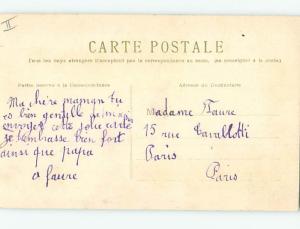 II
CARTE POSTALE
Tous les pays étrangers n'acceptent pas la correspondance au recto, (se renseigner à la poste)
Partie réservée à la Correspondance
Adresse du Destinataire
Ma chère maman tu
es bien gentille de m'avoir
envoyer cette jolie carte
je t'embrasse bien fort
ainsi que papa
a faure
Madame Faure
15 rue Cavallotti
Paris
Paris